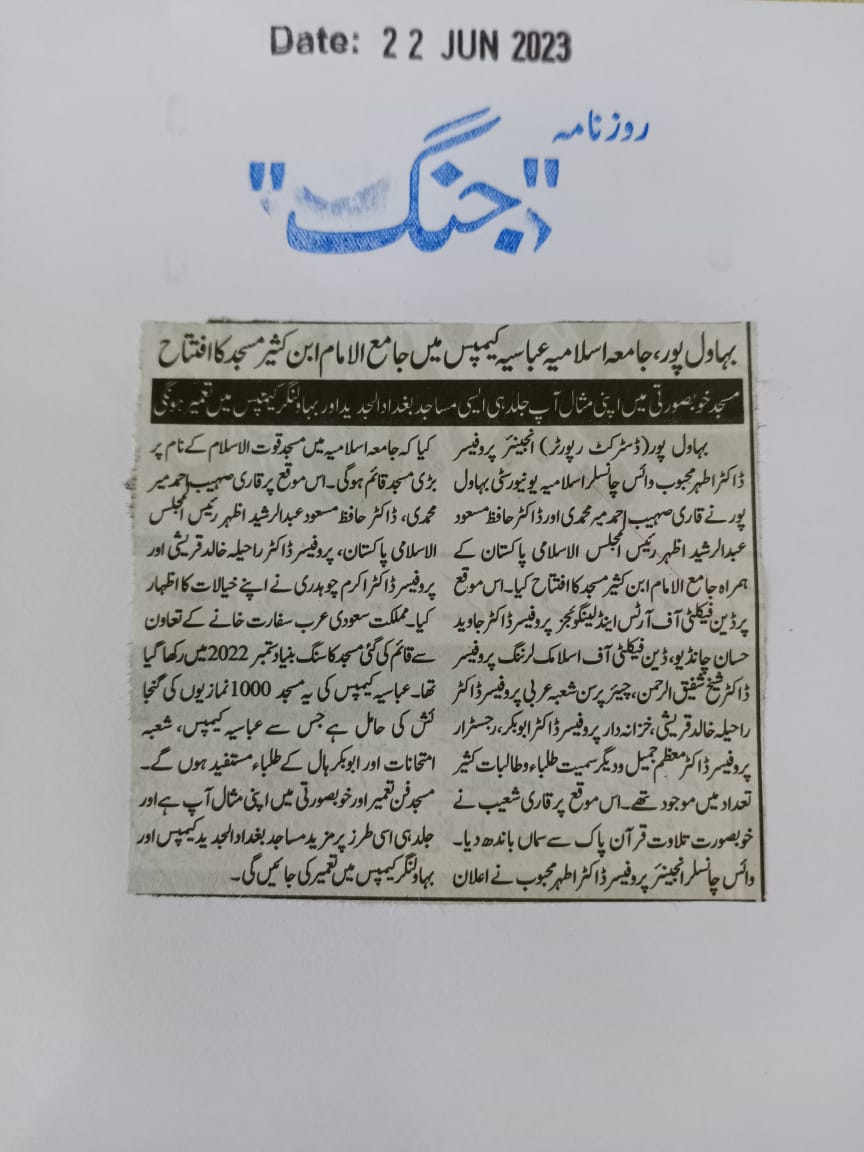 Date: 22 JUN 2023
روزنامہ
"جنگ"
بہاول پور، جامعہ اسلامیہ عباسیہ کیمپس میں جامع الامام ابن کثیر مسجد کا افتتاح
مسجد خوبصورتی میں اپنی مثال آپ جلد ہی ایسی مساجد بغداد الجدید اور بہاولنگر کیمپس میں تعمیر ہونگی
بہاول پور (ڈسٹرکٹ رپورٹر) انجینئر پروفیسر
ڈاکٹر اطہر محبوب وائس چانسلر اسلامیہ یونیورسٹی بہاول
پور نے قاری صہیب احمد میر محمدی اور ڈاکٹر حافظ مسعود
عبدالرشید اظہر رئیس المجلس الاسلامی پاکستان کے
ہمراہ جامع الامام ابن کثیر مسجد کا افتتاح کیا۔ اس موقع
پر ڈین فیکلٹی آف آرٹس اینڈ لینگوئجز پروفیسر ڈاکٹر جاوید
حسان چانڈیو، ڈین فیکلٹی آف اسلامک لرننگ پروفیسر
ڈاکٹر شیخ شفیق الرحمن، چیئر پرسن شعبہ عربی پروفیسر ڈاکٹر
راحیلہ خالد قریشی، خزانہ دار پروفیسر ڈاکٹر ابوبکر، رجسٹرار
پروفیسر ڈاکٹر معظم جمیل و دیگر سمیت طلباء و طالبات کثیر
تعداد میں موجود تھے۔ اس موقع پر قاری شعیب نے
خوبصورت تلاوت قرآن پاک سے سماں باندھ دیا۔
وائس چانسلر انجینئر پروفیسر ڈاکٹر اطہر محبوب نے اعلان
کیا کہ جامعہ اسلامیہ میں مسجد قوت الاسلام کے نام پر
بڑی مسجد قائم ہوگی۔ اس موقع پر قاری صہیب احمد میر
محمدی، ڈاکٹر حافظ مسعود عبدالرشید اظہر رئیس المجلس
الاسلامی پاکستان، پروفیسر ڈاکٹر راحیلہ خالد قریشی اور
پروفیسر ڈاکٹر اکرم چوہدری نے اپنے خیالات کا اظہار
کیا۔ مملکت سعودی عرب سفارت خانے کے تعاون
سے قائم کی گئی مسجد کا سنگ بنیاد ستمبر 2022 میں رکھا گیا
تھا۔ عباسیہ کیمپس کی یہ مسجد 1000 نمازیوں کی گنجا
ئش کی حامل ہے جس سے عباسیہ کیمپس، شعبہ
امتحانات اور ابوبکر ہال کے طلباء مستفید ہوں گے۔
مسجد فن تعمیر اور خوبصورتی میں اپنی مثال آپ ہے اور
جلد ہی اسی طرز پر مزید مساجد بغداد الجدید کیمپس اور
بہاولنگر کیمپس میں تعمیر کی جائیں گی۔